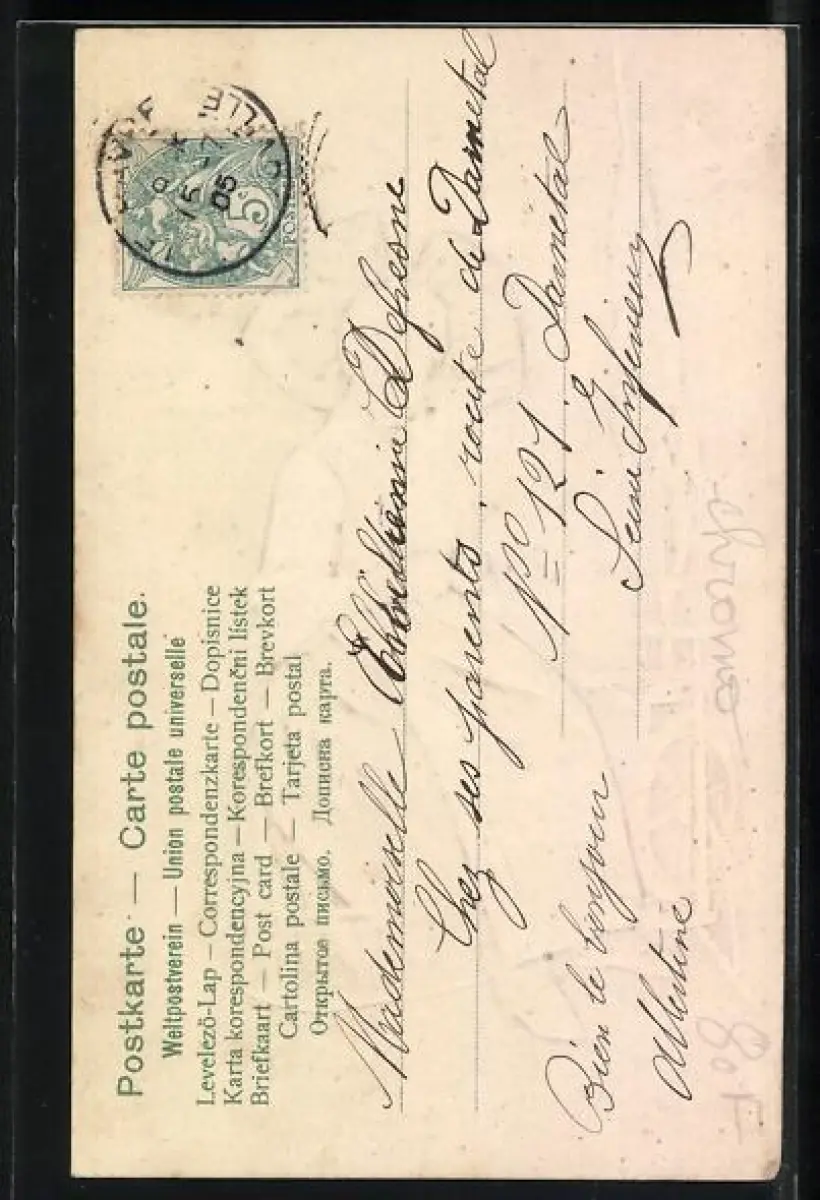 Postkarte — Carte postale.
Weltpostverein — Union postale universelle
Levelezö-Lap — Correspondenzkarte — Dopisnice
Karta korespondencyjna — Korespondenčni listek
Briefkaart — Post card — Brefkort — Brevkort
Cartolina postale — Tarjeta postal
Открытое письмо. Дописна карта.
5c
POSTES
LE HAVRE
15
05
Mademoiselle Defresne
Chez ses parents, route de Darnetal
No 121. Darnetal
Seine Inférieure
Bien le bonjour
Albertine
chromo
80 F